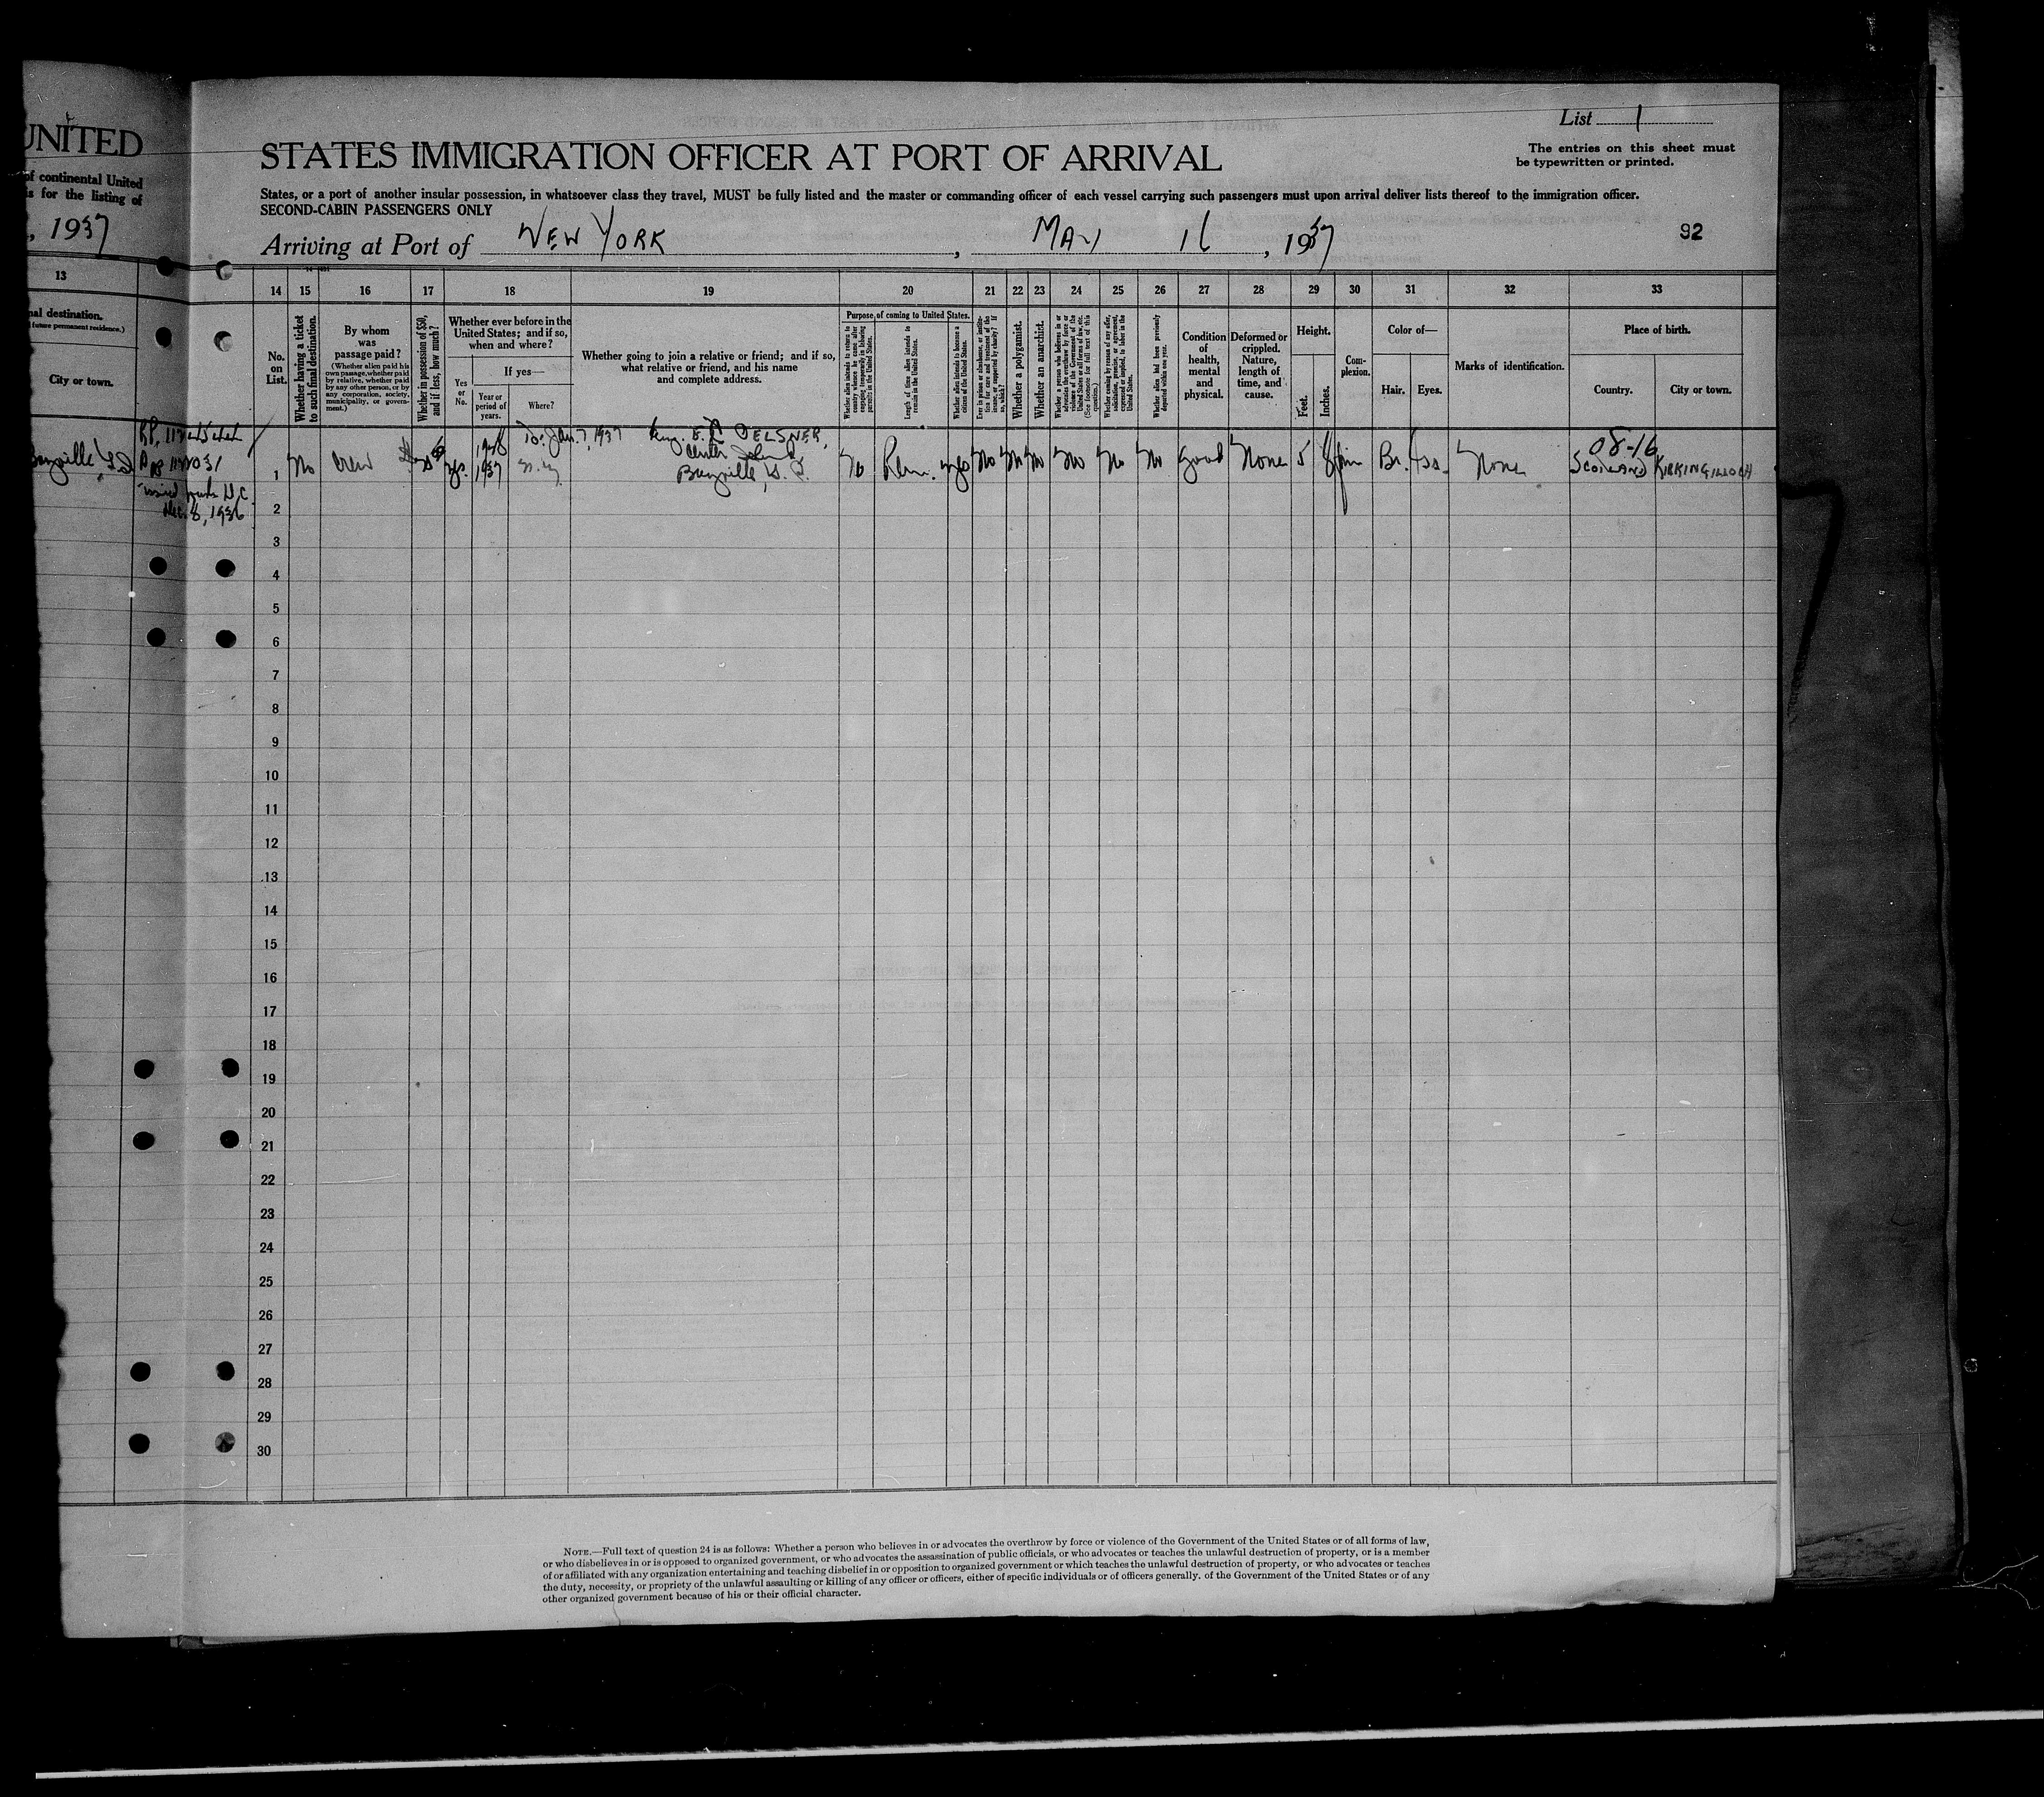 UNITED
of continental United
is for the listing of
, 1937
13
nal destination.
future permanent residence.)
City or town.
List 1
The entries on this sheet must
be typewritten or printed.
STATES IMMIGRATION OFFICER AT PORT OF ARRIVAL
States, or a port of another insular possession, in whatsoever class they travel, MUST be fully listed and the master or commanding officer of each vessel carrying such passengers must upon arrival deliver lists thereof to the immigration officer.
SECOND-CABIN PASSENGERS ONLY
Arriving at Port of NEW YORK, MAY 16, 1937
92
14 15 16 17 18 19 20 21 22 23 24 25 26 27 28 29 30 31 32 33
No.
on
List.
Whether having a ticket
to such final destination.
By whom
was
passage paid?
(Whether alien paid his
own passage, whether paid
by relative, whether paid
by any other person, or by
any corporation, society,
municipality, or govern-
ment.)
Whether in possession of $50,
and if less, how much?
Whether ever before in the
United States; and if so,
when and where?
Yes
or
No.
If yes—
Year or
period of
years.
Where?
Whether going to join a relative or friend; and if so,
what relative or friend, and his name
and complete address.
Purpose of coming to United States.
Whether alien intends to return to
country whence he came after
engaging temporarily in laboring
pursuits in the United States.
Length of time alien intends to
remain in the United States.
Whether alien intends to become a
citizen of the United States.
Ever in prison or almshouse, or institu-
tion for care and treatment of the
insane, or supported by charity? If
so, which?
Whether a polygamist.
Whether an anarchist.
Whether a person who believes in or
advocates the overthrow by force or
violence of the Government of the
United States or all forms of law, etc.
(See footnote for full text of this
question.)
Whether coming by reason of any offer,
solicitation, promise, or agreement,
expressed or implied, to labor in the
United States.
Whether alien had been previously
deported within one year.
Condition
of
health,
mental
and
physical.
Deformed or
crippled.
Nature,
length of
time, and
cause.
Height.
Feet.
Inches.
Com-
plexion.
Color of—
Hair.
Eyes.
Marks of identification.
Place of birth.
Country.
City or town.
issued
Dec. 8, 1936
1 No crew yes 1937 N.Y.
To: Jan. 7, 1937
E. OELSNER,
Center Island
No yes No No No No No No Good None 5 8 Br. None
08-16
SCOTLAND KIRKINGILLOCH
2
3
4
5
6
7
8
9
10
11
12
13
14
15
16
17
18
19
20
21
22
23
24
25
26
27
28
29
30
NOTE.—Full text of question 24 is as follows: Whether a person who believes in or advocates the overthrow by force or violence of the Government of the United States or of all forms of law,
or who disbelieves in or is opposed to organized government, or who advocates the assassination of public officials, or who advocates or teaches the unlawful destruction of property, or is a member
of or affiliated with any organization entertaining and teaching disbelief in or opposition to organized government or which teaches the unlawful destruction of property, or who advocates or teaches
the duty, necessity, or propriety of the unlawful assaulting or killing of any officer or officers, either of specific individuals or of officers generally. of the Government of the United States or of any
other organized government because of his or their official character.